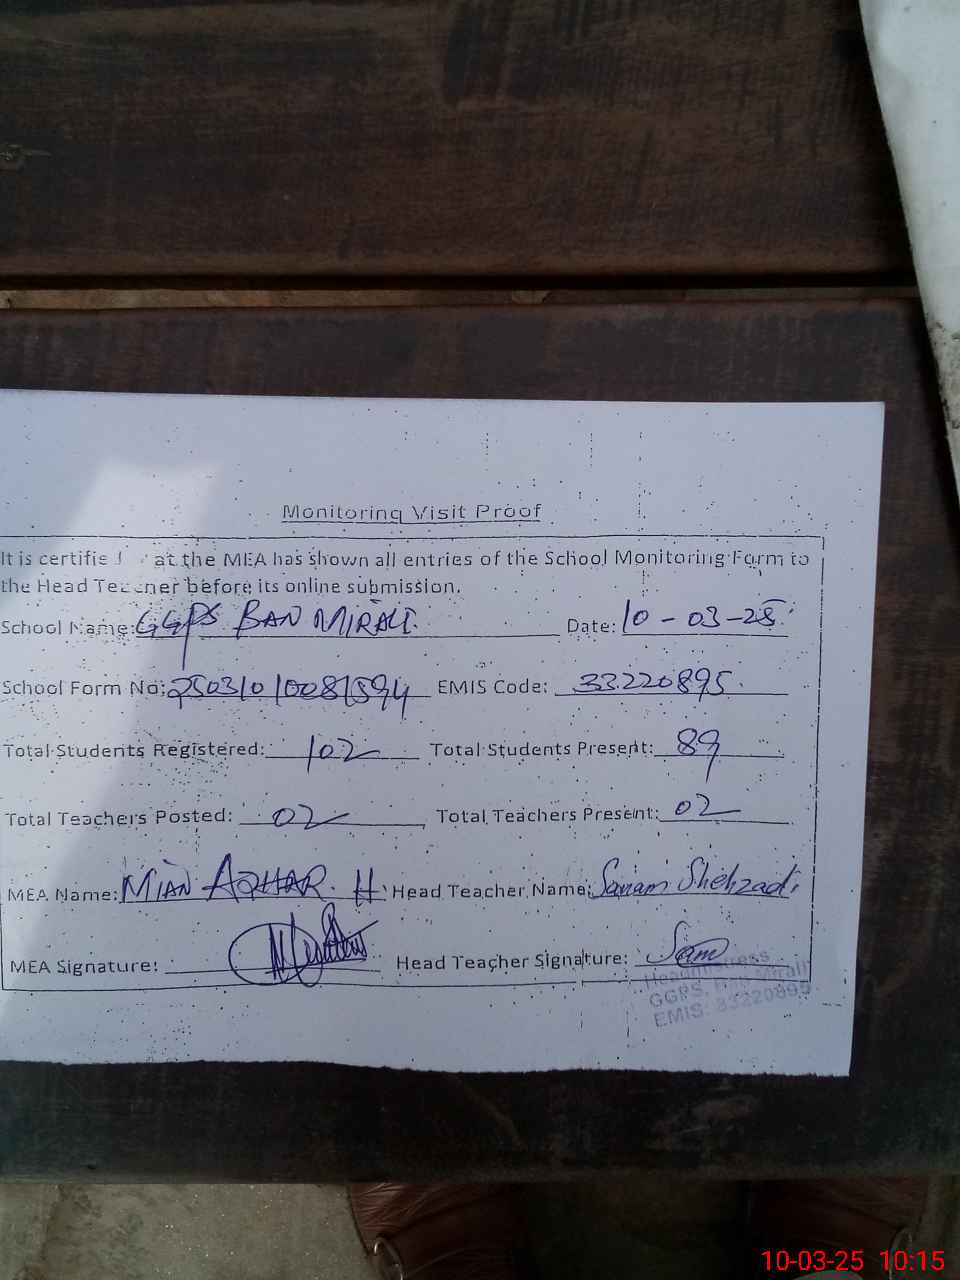 Monitoring Visit Proof
It is certifie at the MEA has shown all entries of the School Monitoring Form to
the Head Teacher before its online submission.
School Name: GGPS BAN MIRALI. Date: 10-03-25
School Form No: EMIS Code: 33220895
Total Students Registered: 102 Total Students Present: 89
Total Teachers Posted: 02 Total Teachers Present: 02
MEA Name: MIAN AZHAR. H Head Teacher Name: Sanam Shehzadi
MEA Signature: Head Teacher Signature: Sam
Headmistress
GGPS, Ban Mirali
EMIS: 33220895
10-03-25 10:15